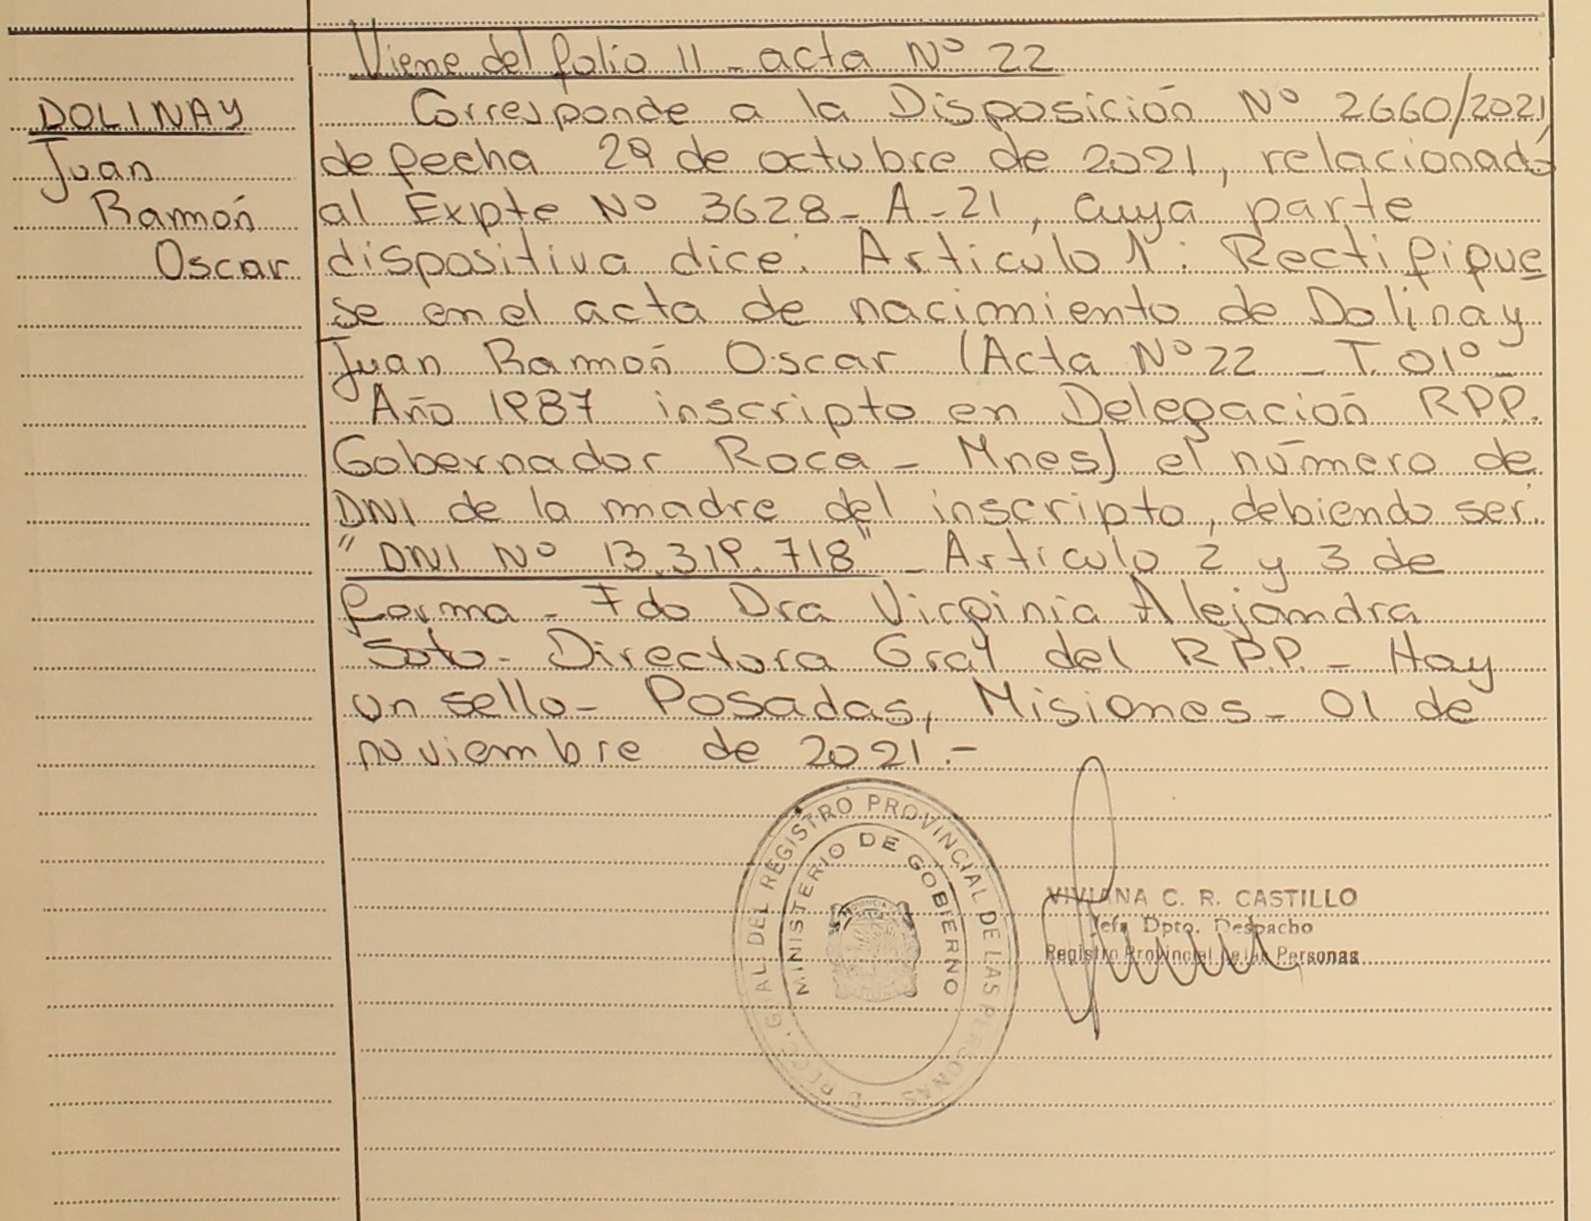 Viene del folio 11 - acta Nº 22
DOLINAY
Juan
Ramón
Oscar
Corresponde a la Disposición Nº 2660/2021
de fecha 29 de octubre de 2021, relacionado
al Expte Nº 3628-A-21, cuya parte
dispositiva dice: Articulo 1: Rectifique
se en el acta de nacimiento de Dolinay
Juan Ramón Oscar (Acta Nº 22 - T. 01º -
Año 1987 inscripto en Delegación RPP.
Gobernador Roca - Mnes) el número de
DNI de la madre del inscripto, debiendo ser:
"DNI Nº 13.319.718" - Articulo 2 y 3 de
forma - Fdo Dra Virginia Alejandra
Soto - Directora Gral del R.P.P. - Hay
un sello - Posadas, Misiones - 01 de
noviembre de 2021.-
DIREC. GRAL DEL REGISTRO PROVINCIAL DE LAS PERSONAS
MINISTERIO DE GOBIERNO
VIVIANA C. R. CASTILLO
Jefa Dpto. Despacho
Registro Provincial de las Personas